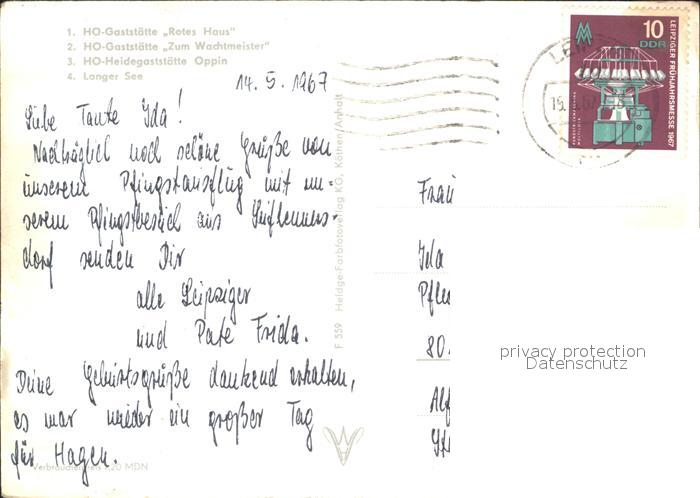 1. HO-Gaststätte „Rotes Haus"
2. HO-Gaststätte „Zum Wachtmeister"
3. HO-Heidegaststätte Oppin
4. Langer See
14. 5. 1967
Liebe Tante Ida!
Nachträglich noch schöne Grüße von
unserem Pfingstausflug mit un-
serem Pfingstbesuch aus Seifhenners-
dorf senden Dir
alle Leipziger
und Pate Frida.
Deine Geburtsgrüße dankend erhalten,
es war wieder ein großer Tag
für Hagen.
Verbraucherpreis 0,20 MDN
F 559 Heldge-Farbfotoverlag KG, Köthen/Anhalt
10
DDR
LEIPZIGER FRÜHJAHRSMESSE 1967
Frau
Ida
Pfle
80
Alf
privacy protection
Datenschutz